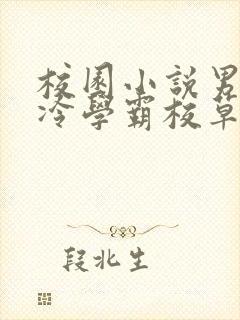 校園小說男
冷學霸校草
段北生